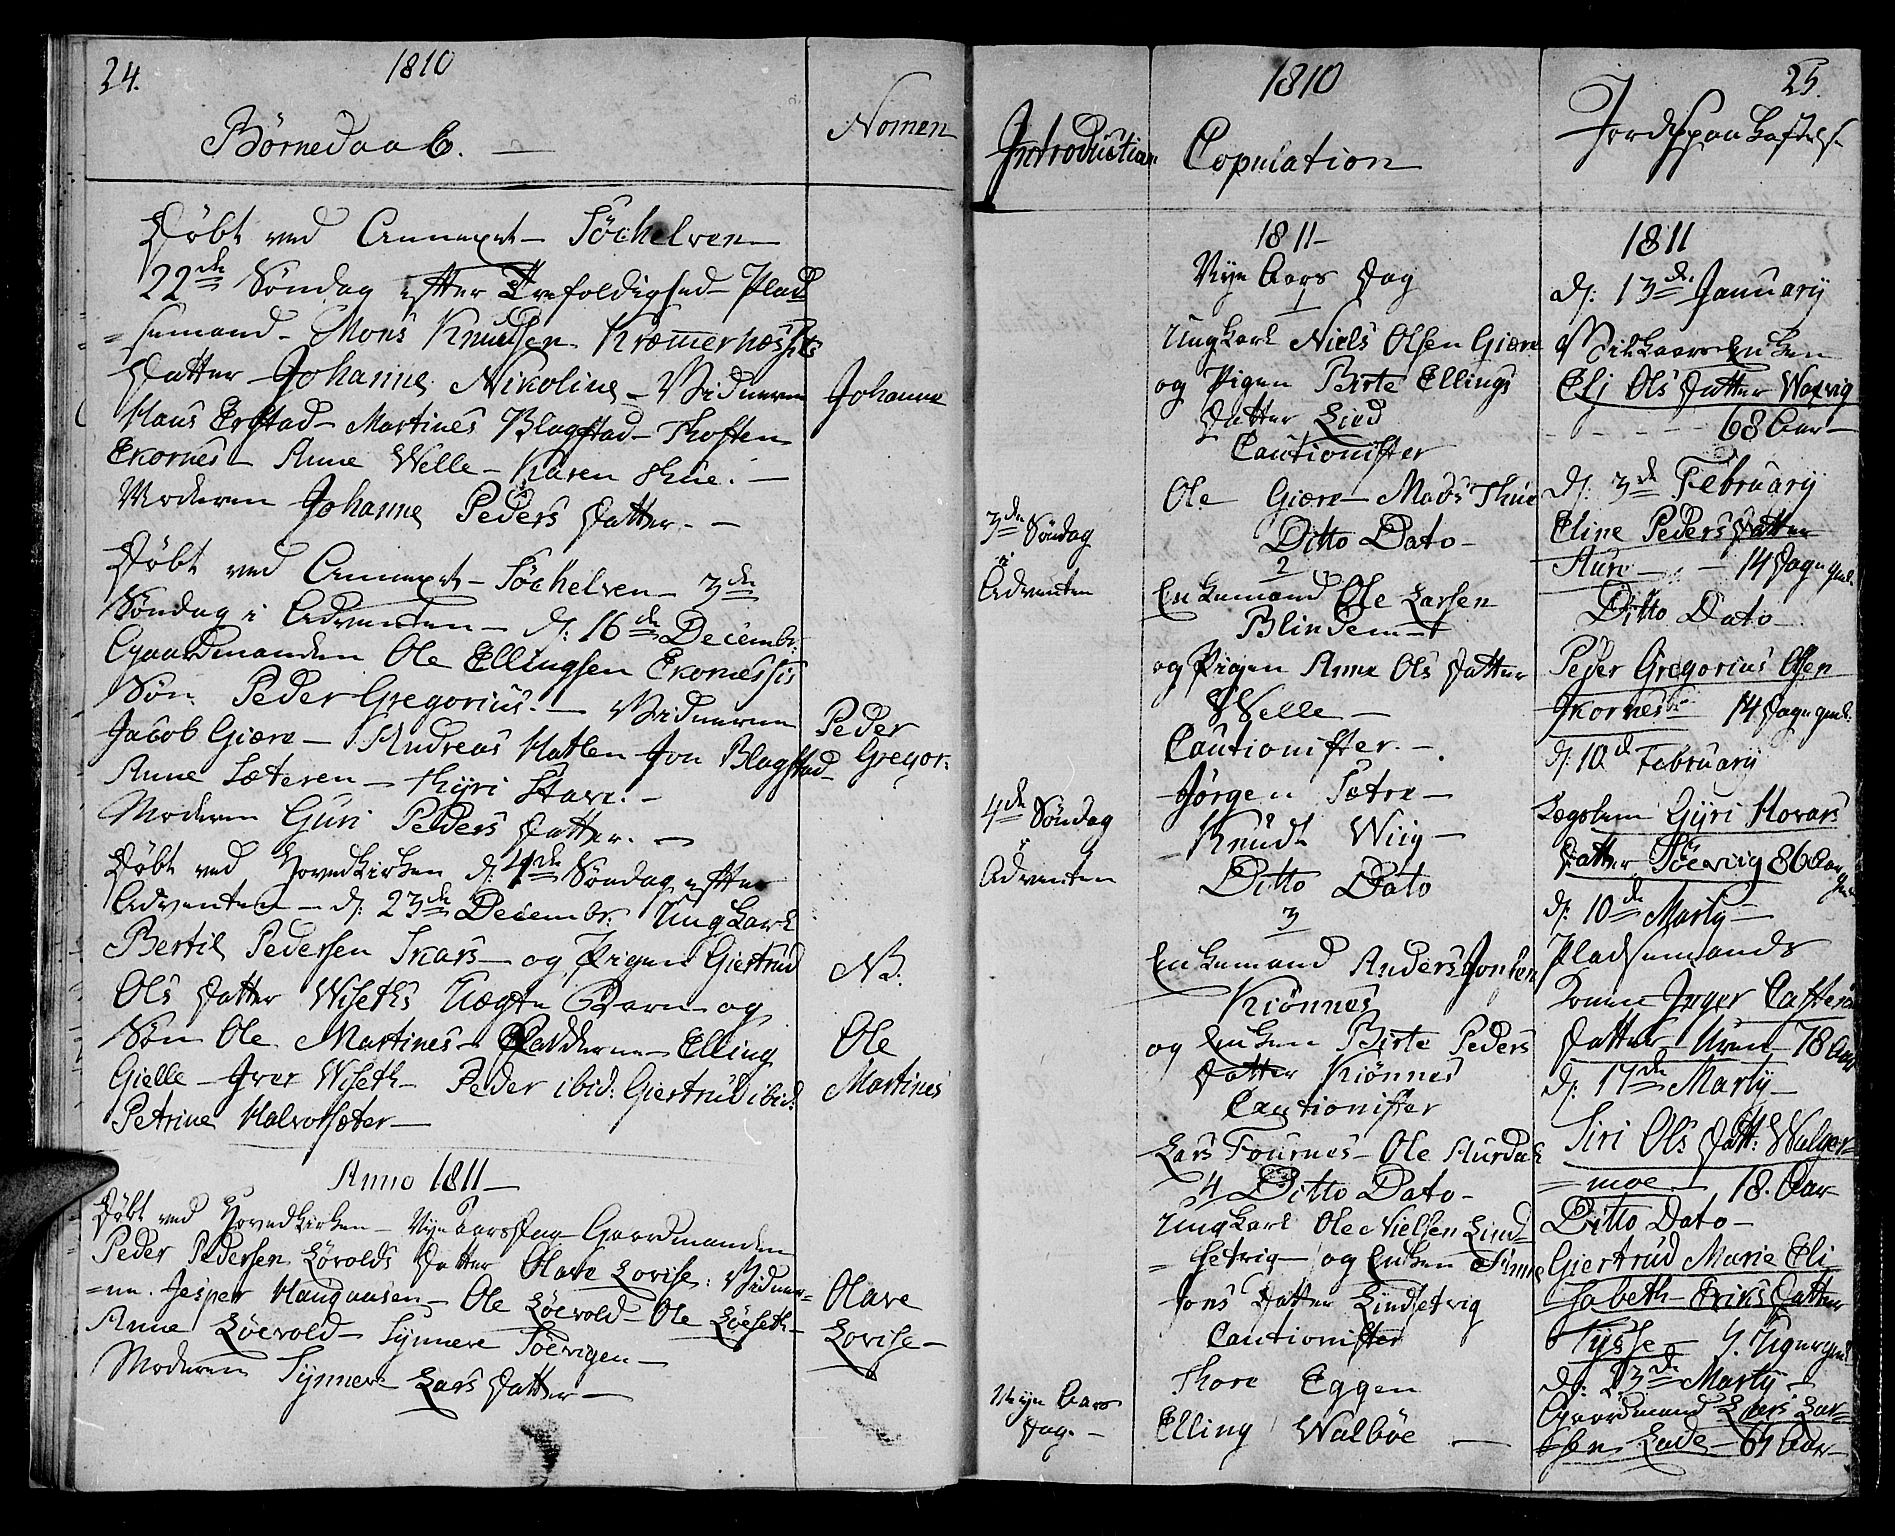 24.
1810
Børnedaab.
Nomen
Døbt ved Annexet Söchelven
22de Søndag efter Trefoldighed Plad
=semand Mons Knudsen Kræmerhæssets
Datter Johanne Nikoline Vidnerne
Hans Erstad Martines Blagstad Thosten
Ekornes Anne Welle Karen Thue.
Moderen Johanne Peders Datter.
Johanne
Døbt ved Annexet Söchelven 3de
Søndag i Adventen d: 16de Decembr:
Gaardmanden Ole Ellingsen Ekornessis
Søn Peder Gregorius Vidnerne
Jacob Giære Andreas Hatlen Jon Blagstad
Anne Sæteren Kyri Stave.
Moderen Guri Peders Datter.
Peder
Gregor:
Døbt ved Hovedkirken d: 4de Søndag efter
Adventen d: 23de Decembr. Ungkarl
Bertil Pedersen Skars og Pigen Giertrud
Ols Datter Wiseths Uægte Barn og
Søn Ole Martines Fadderne Elling
Gielle Iver Wiseth Peder ibid: Giertrud ibid:
Petrine Halvorsæter
NB.
Ole
Martines
Anno 1811
Døbt ved Hovedkirken Nye Aars Dag Gaardmanden
Peder Pedersen Lövolds Datter Olave Lovise: Vidner=
=ne. Jesper Haugaasen Ole Löevold Ole Löeseth
Anne Löevold Synneve Söevigen
Moderen Synneve Lars Datter
Olave
Lovise
25.
1810
Introduction
Copulation
Jordspaakastelse
3de Søndag
i
Adventen
4de Søndag
i
Adventen
Nye Aars
Dag.
1811
Nye Aars Dag
1
Ungkarl Niels Olsen Giære
og Pigen Birte Ellings
Datter Lied
Cautionister
Ole Giære Mads Thue
Ditto Dato
2
Enkemand Ole Larsen
Blindem
og Pigen Anne Ols Datter
Welle
Cautionister.
Jørgen Sætre
Knudt Wiig
Ditto Dato
3
Enkemand Anders Jonsen
Kiønnes
og Enken Birte Peders
Datter Kiønnes
Cautionister
Lars Tournes Ole Aurdal
4 Ditto Dato
Ungkarl Ole Nielsen Lind=
=setvig og Enken Sinne
Jons Datter Lindsetvig
Cautionister
Thore Eggen
Elling Walbøe
1811
d: 13de January
Vilkaars Enken
Eli Ols Datter Waxvig
68 Aar
d: 3de February
Eline Peders Datter
Aure 14 Dage gml.
Ditto Dato
Peder Gregorius Olsen
Ikornes 14 Dage gml.
d: 10de February
Lægslem Gyri Hovars
Datter Söevig 86 Aar
gml
d: 10de Marty
Pladsemands
Konen Inger Caspers
Datter Uren 78 Aar
d: 17de Marty
Siri Ols Datt: Walger=
=moe 18. Aar
Ditto Dato
Giertrud Marie Eli
sabeth Eriks Datter
Tysse 7. Uger gml
d: 23de Marty
Gaardmand Lars Lar=
=sen Lade 67 Aar